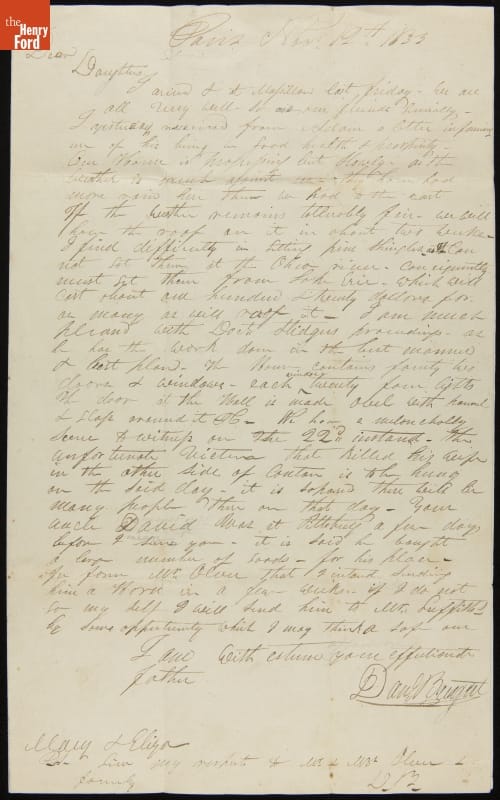 the
Henry
Ford
Paris Nov. 12th 1833
Dear
Daughters
I arived at Massillon last friday - We are
all very well - so are our friends
I yesterday received from Adam a letter informing
me of his being in good health &
Our House is progressing but slowly - as the
weather is much against us - they have had
more rain here than we had to the east
If the weather remains tolerably fair - we will
have the roof on it in about two weeks -
I find difficulty in getting pine shingles - Can
not get them at the Ohio river - consequently
must get them from Lake Erie - which will
cost about one hundred & twenty dollars for
as many as will roof it - I am much
pleased with Doct proceedings - as
he has the work done in the best manner
& best plan - The House contains forty six
doors & windows - each window twenty four lights
The door at the Hall is made oval with
& Glass around it &c - We have a melancholly
Scene to witness on the 22nd instant - the
unfortunate that killed his wife
in the other side of Canton is to be hung
on the said day - it is soposed there will be
many people there on that day - Your
uncle David was at Pittsburg a few days
before I - it is said he bought
a large number of goods - for his place -
In form Mr. Oliver that I intend sending
him a Horse in a few weeks - if I do not
go my self I will send him to Mr.
by some opportunity which I may think a safe one
I am with esteem your effectionate
father
Mary & Eliza
Give my respects to Mr & Mrs Oliver &
family
D.B.